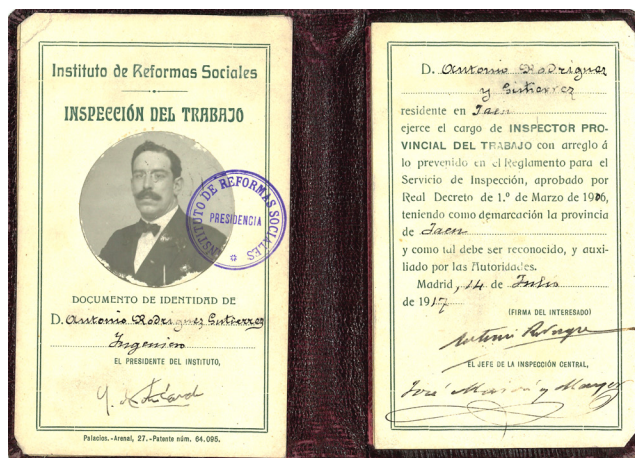 Instituto de Reformas Sociales
INSPECCIÓN DEL TRABAJO
INSTITUTO DE REFORMAS SOCIALES
PRESIDENCIA
DOCUMENTO DE IDENTIDAD DE
D. Antonio Rodriguez Gutierrez
Ingeniero
EL PRESIDENTE DEL INSTITUTO,
Palacios.-Arenal, 27.-Patente núm. 64.095.
D. Antonio Rodriguez
y Gutierrez
residente en Jaen
ejerce el cargo de INSPECTOR PRO-
VINCIAL DEL TRABAJO con arreglo á
lo prevenido en el Reglamento para el
Servicio de Inspección, aprobado por
Real Decreto de 1.º de Marzo de 1906,
teniendo como demarcación la provincia
de Jaen
y como tal debe ser reconocido, y auxi-
liado por las Autoridades.
Madrid, 14 de Julio
de 1917
(FIRMA DEL INTERESADO)
Antonio
EL JEFE DE LA INSPECCIÓN CENTRAL,
José Marvá y Mayer